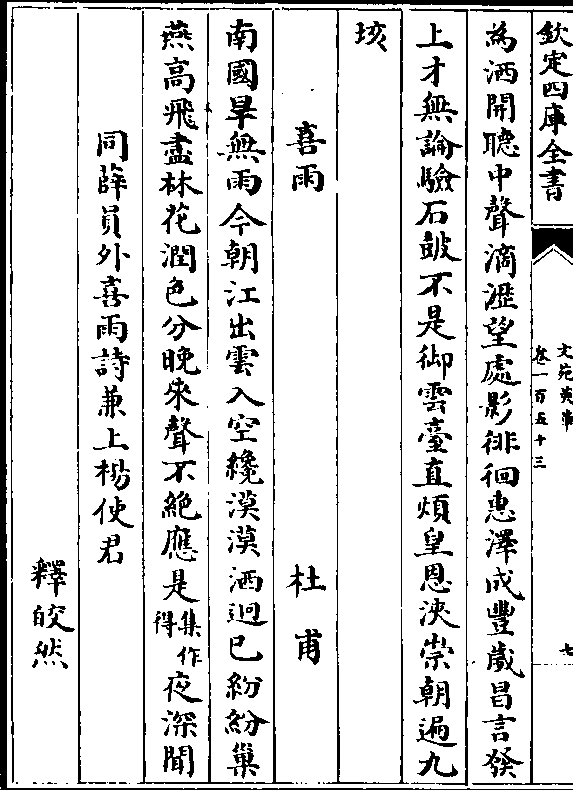 欽定四庫全書
文苑英華
卷一百五十三
七
為洒開聽中聲滴瀝望處影徘徊惠澤成豐歲昌言發
上才無論驗石鼓不是御雲臺直煩皇恩浹崇朝遍九
垓
喜雨
杜甫
南國旱無雨今朝江出雲入空纔漠漠洒迥已紛紛巢
燕高飛盡林花潤色分晚來聲不絶應是集作得夜深聞
同薛員外喜雨詩兼上楊使君
釋皎然